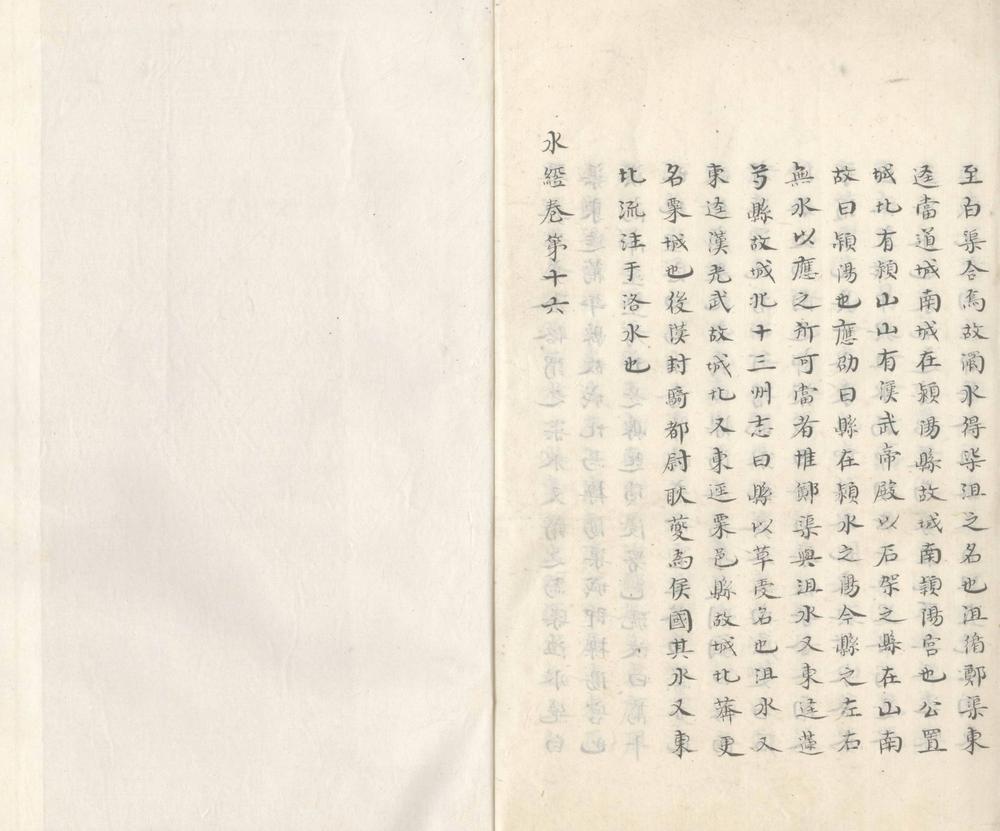 至白渠合焉故濁水得柒沮之名也沮循鄭渠東
逕當道城南城在潁陽縣故城南潁陽宫也公置
城北有潁山山有漢武帝殿以石架之縣在山南
故曰潁陽也應劭曰縣在潁水之陽今縣之左右
無水以應之所可當者惟鄭渠與沮水又東逕蓮
芍縣故城北十三州志曰縣以草受名也沮水又
東逕漢光武故城北又東逕粟邑縣故城北莾更
名粟城也後漢封騎都尉耿夔為侯國其水又東
北流注于洛水也
水經卷第十六